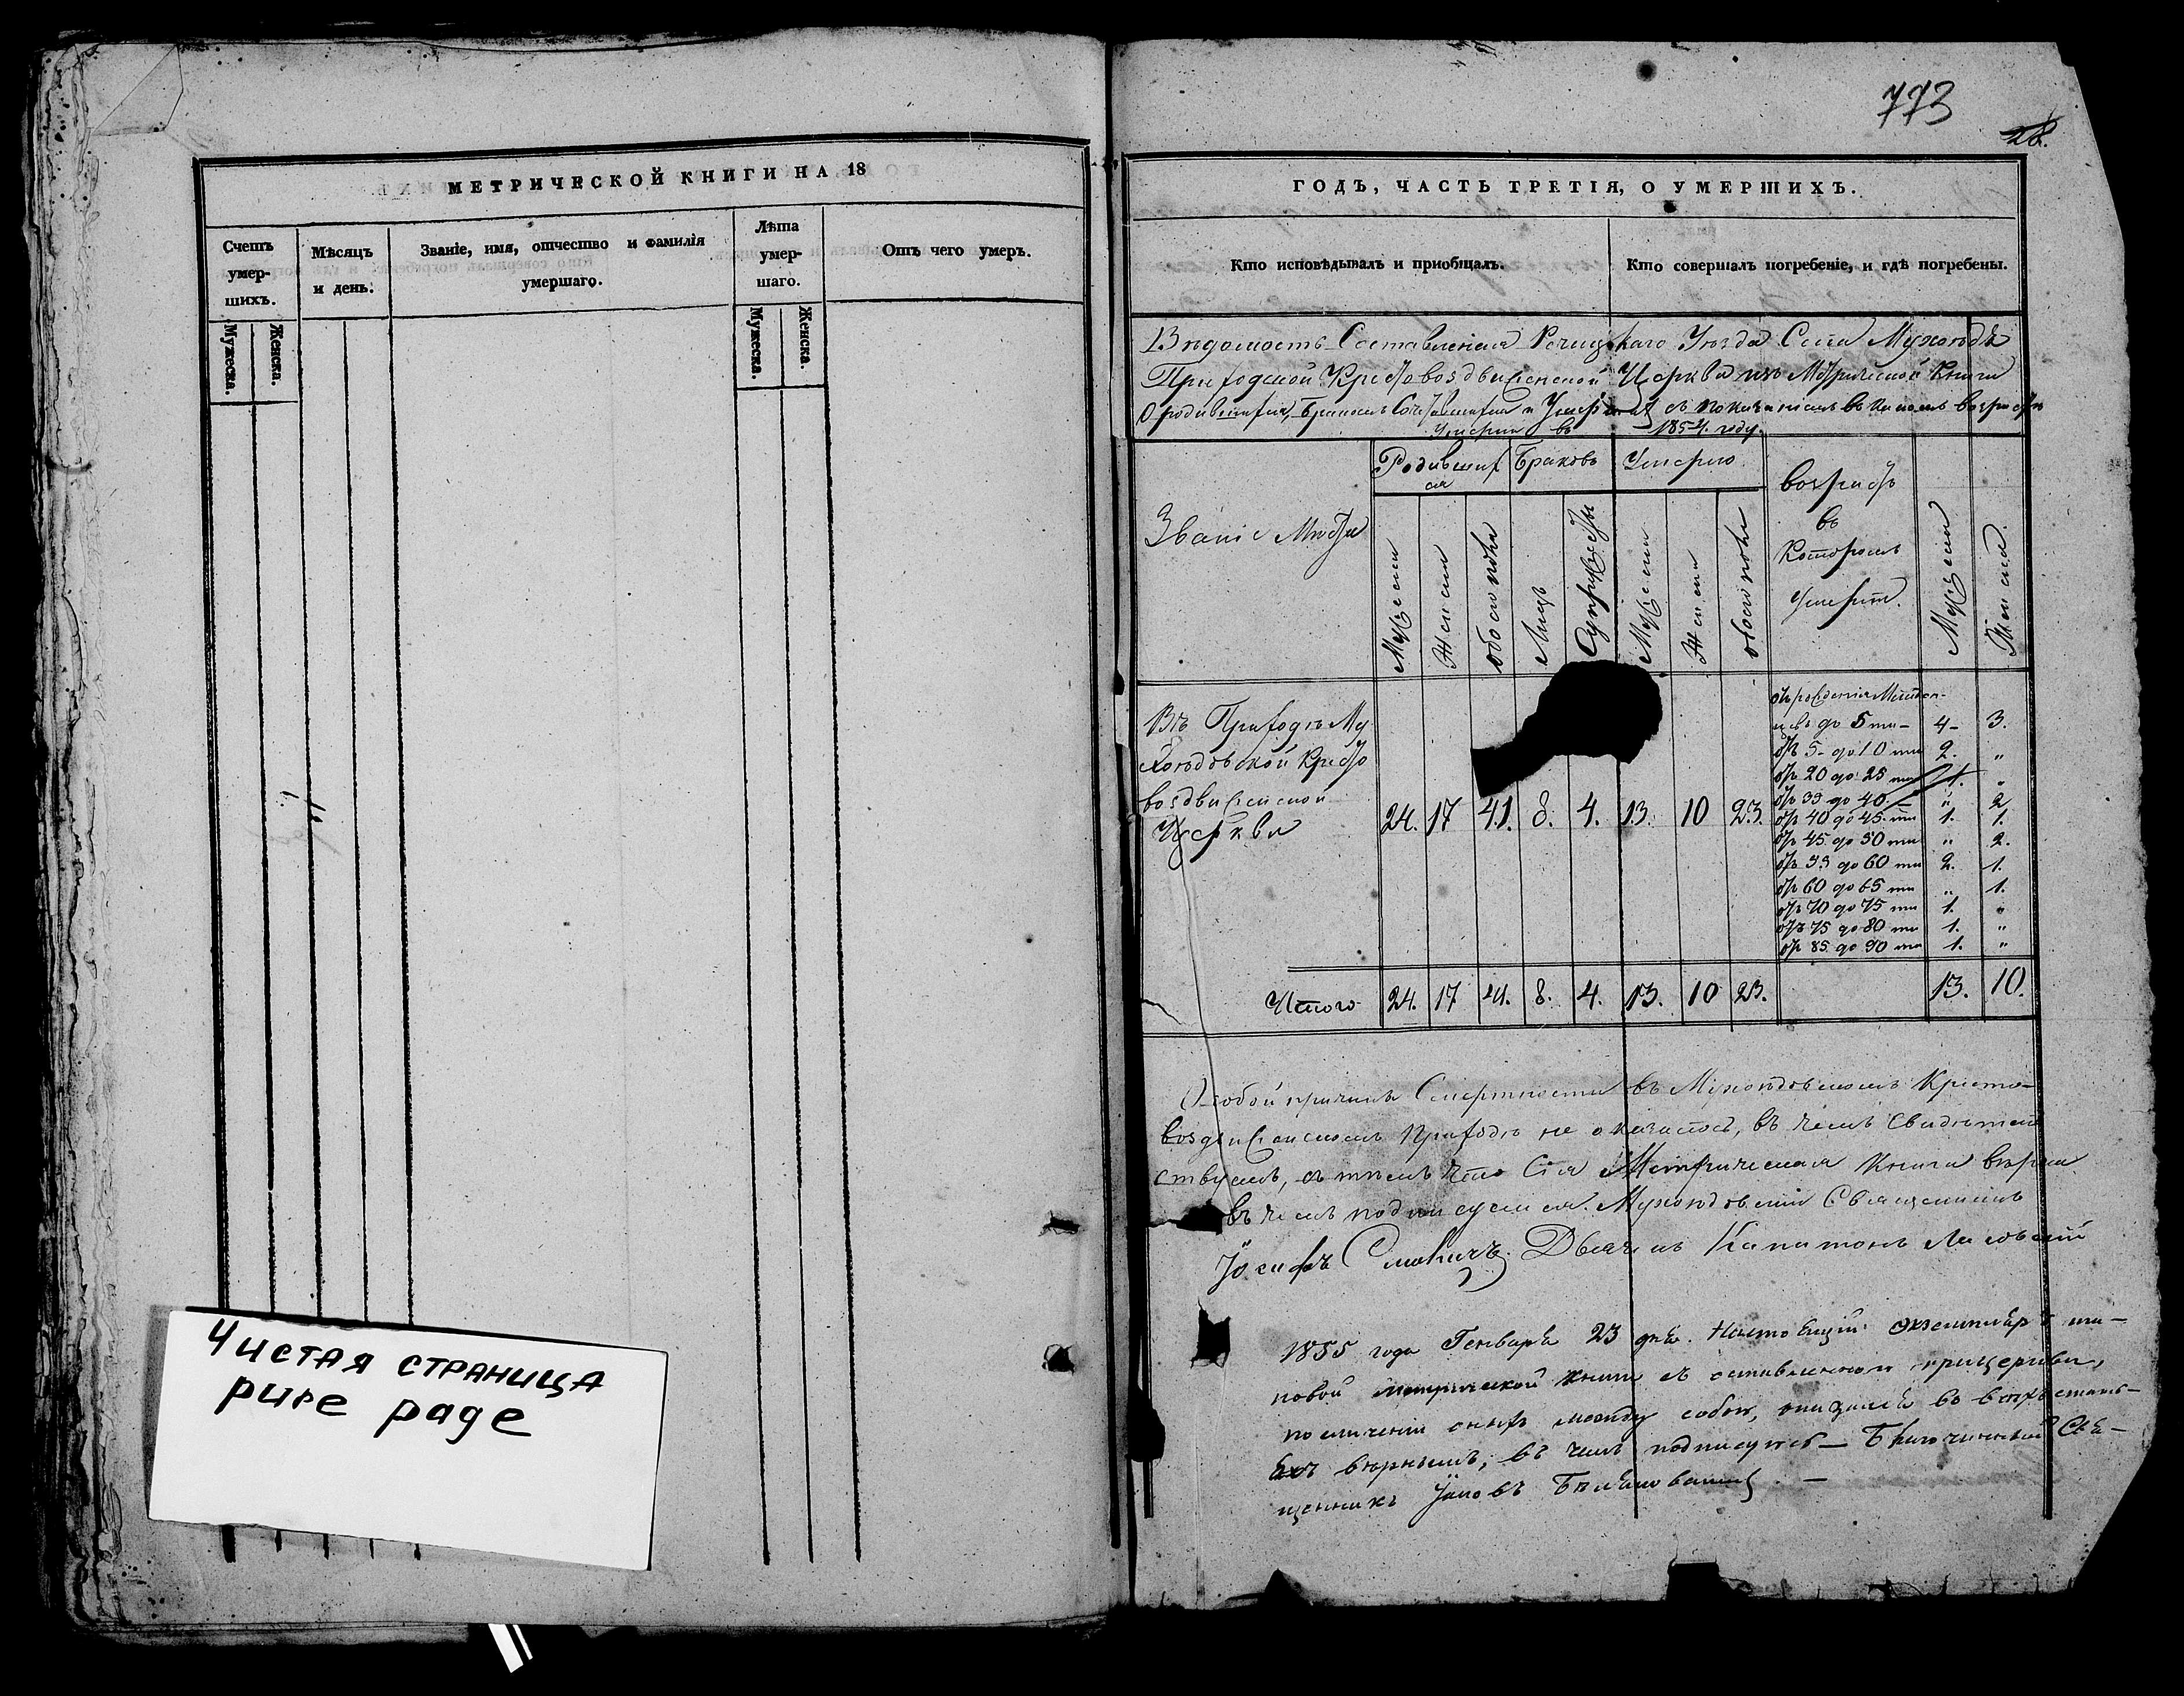 МЕТРИЧЕСКОЙ КНИГИ НА 18
Счетъ умер-шихъ.
Мужеска.
Женска.
Мѣсяцъ и день.
Званіе, имя, отчество и фамилія умершаго.
Лѣта умер-шаго.
Мужеска.
Женска.
Отъ чего умеръ.
Чистая страница
pure page
773
28.
ГОДЪ, ЧАСТЬ ТРЕТІЯ, О УМЕРШИХЪ.
Кто исповѣдывалъ и пріобщалъ.
Кто совершалъ погребеніе, и гдѣ погребены.
Вѣдомость Составленная Рѣчицкаго Уѣзда Села Мухоѣдъ
Приходской Крестовоздвиженской Церкви изъ Метрической Книги
О родившихся, Бракомъ Сочетавшихся и Умершихъ съ показаніемъ въ какомъ возрастѣ
Умерли въ 1854. году.
Званіе Мѣста
Родившихся
Браковъ
Умерло
возрастъ
въ
Которомъ
Умерли.
Мужеска
Женска
Мужеска
Женска
обоего пола
Лицъ
Супружествъ
Мужеска
Женска
обоего пола
Въ Приходѣ Му
хоѣдовской Кресто
воздвиженской
Церкви
24. 17 41. 8. 4. 13. 10 23.
отъ рожденія Младен-
цевъ до 5 ти - 4 - 3.
отъ 5 - до 10 ти 2. „
отъ 20 до 25 ти 1. „
отъ 35 до 40 - „ 2
отъ 40 до 45 ти 1. 1.
отъ 45 до 50 ти „ 2.
отъ 55 до 60 ти 2. 1.
отъ 60 до 65 ти „ 1.
отъ 70 до 75 ти 1. „
отъ 75 до 80 ти 1. „
отъ 85 до 90 ти 1. „
Итого 24. 17 41. 8. 4. 13. 10 23. 13. 10.
Особой причины Смертности въ Мухоѣдовскомъ Кресто-
воздвиженскомъ Приходѣ не оказалось, въ чемъ Свидѣтель
ствуемъ, съ тѣмъ что Сія Метрическая Книга вѣрна
въ чемъ подписуемся. Мухоѣдовскій Священникъ
Іосифъ Дьячекъ Капитонъ Лисовскій
1855 года Генваря 23 дня. Настоящій экземпляръ та-
ковой метрической книги съ оставленнымъ при церкви,
по сличеніи оныхъ между собою, оказался во всѣхъ стать-
яхъ вѣрнымъ, въ чемъ подписуюсь - Благочинный Свя-
щенникъ Іаковъ